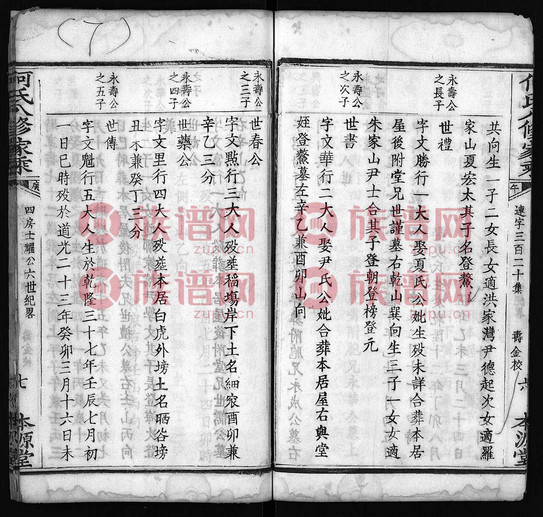 (7)
何氏八修家乘
連字三百二十集
壽金校
六
本源堂
共向生一子二女長女適洪家灣尹德起次女適羅
家山夏宏太其子名登鰲
永壽公
之長子
世禮
字文勝行一大人娶夏氏公妣生歿未詳合葬本居
屋後附堂兄世謹墓右乾山巽向生三子一女女適
朱家山尹士合其子登朝登榜登元
永壽公
之次子
世書
字文華行二大人娶尹氏公妣合葬本居屋右與堂
姪登鰲墓左辛乙兼酉卯山向
永壽公
之三子
世春公
字文煕行三大人歿葬稲塲岸下土名細窊酉卯兼
辛乙三分
永壽公
之四子
世藥公
字文里行四大人歿葬本居白虎外塝土名晒谷塝
丑木兼癸丁三分
永壽公
之五子
世傳
字文魁行五大人生於乾隆三十七年壬辰七月初
一日巳時歿於道光二十三年癸卯三月十六日未
何氏八修家乘
四房士耀公六世紀畧
七
本源堂
族谱网
zupu.cn